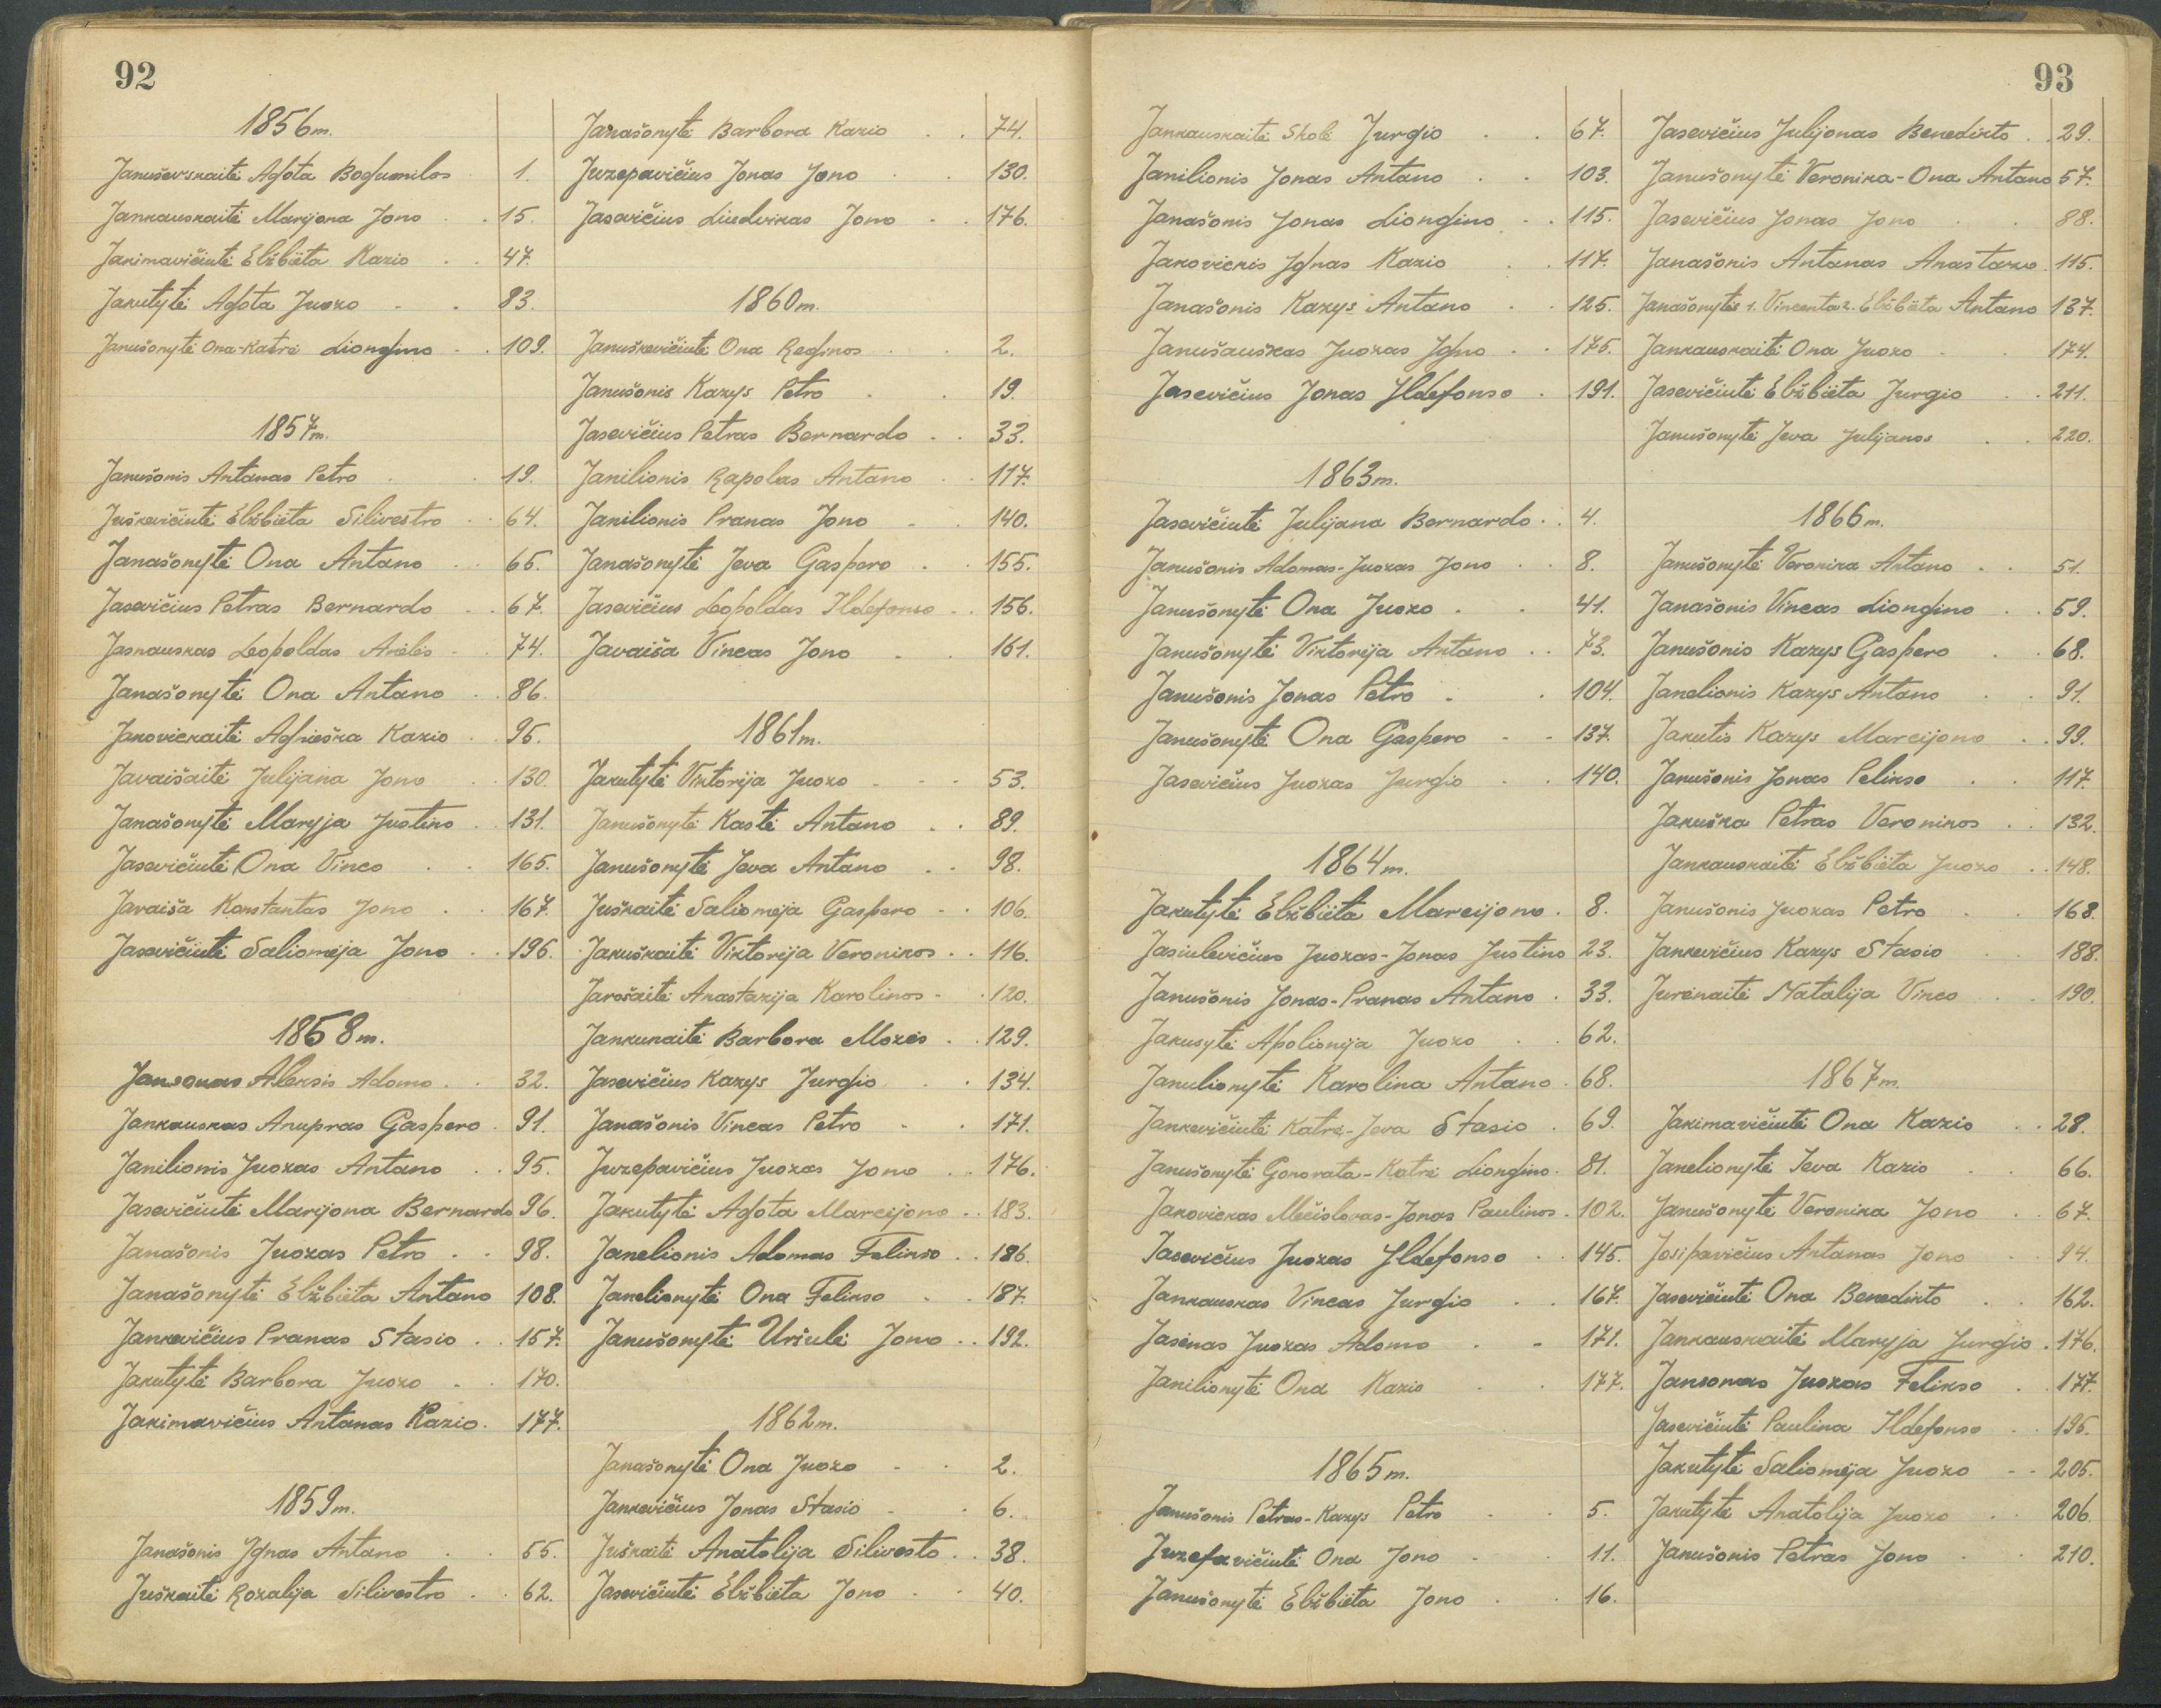 92
1856m.
Januševskaitė Agota Bogumilos 1.
Jankauskaitė Marijona Jono 15.
Jakimavičiutė Elžbiėta Kazio 47.
Jakutytė Agota Juozo 83.
Janušonytė Ona-Katrė Liongino 109.
1857m.
Janušonis Antanas Petro 19.
Juškevičiutė Elžbiėta Silivestro 64.
Janašonytė Ona Antano 65.
Jasevičius Petras Bernardo 67.
Jasnauskas Leopoldas 74.
Janašonytė Ona Antano 86.
Jakovickaitė Agnieška Kazio 95.
Javaišaitė Julijana Jono 130.
Janašonytė Maryja Justino 131.
Jasevičiutė Ona Vinco 165.
Javaiša Konstantas Jono 167.
Jasevičiutė Saliomėja Jono 196.
1858m.
Jansonas Aleksis Adomo 32.
Jankauskas Anupras Gaspero 91.
Janilionis Juozas Antano 95.
Jasevičiutė Marijona Bernardo 96.
Janašonis Juozas Petro 98.
Janašonytė Elžbiėta Antano 108.
Jankevičius Pranas Stasio 157.
Jakutytė Barbora Juozo 170.
Jakimavičius Antanas Kazio 177.
1859m.
Janašonis Ignas Antano 55.
Juškaitė Rozalija Silivestro 62.
Janašonytė Barbora Kazio 74.
Juzepavičius Jonas Jono 130.
Jasevičius Liudvikas Jono 176.
1860m.
Januškevičiutė Ona Reginos 2.
Janušonis Kazys Petro 19.
Jasevičius Petras Bernardo 33.
Janilionis Rapolas Antano 117.
Janilionis Pranas Jono 140.
Janašonytė Jeva Gaspero 155.
Jasevičius Leopoldas Ildefonso 156.
Javaiša Vincas Jono 161.
1861m.
Jakutytė Viktorija Juozo 53.
Janušonytė Kastė Antano 89.
Janušonytė Jeva Antano 98.
Juškaitė Saliomėja Gaspero 106.
Jakuškaitė Viktorija Veronikos 116.
Jarošaitė Anastazija Karolinos 120.
Jankunaitė Barbora Mozės 129.
Jasevičius Kazys Jurgio 134.
Janašonis Vincas Petro 171.
Juzepavičius Juozas Jono 176.
Jakutytė Agota Marcijono 183.
Janelionis Adomas Felikso 186.
Janelionytė Ona Felikso 187.
Janušonytė Uršulė Jono 192.
1862m.
Janašonytė Ona Juozo 2.
Jankevičius Jonas Stasio 6.
Juškaitė Anatolija Silivesto 38.
Jasevičiutė Elžbiėta Jono 40.
93
Jankauskaitė Skolė Jurgio 67.
Janilionis Jonas Antano 103.
Janašonis Jonas Liongino 115.
Jakovickis Ignas Kazio 117.
Janašonis Kazys Antano 125.
Janušauskas Juozas Igno 175.
Jasevičius Jonas Ildefonso 191.
1863m.
Jasevičiutė Julijana Bernardo 4.
Janušonis Adomas-Juozas Jono 8.
Janušonytė Ona Juozo 41.
Janušonytė Viktorija Antano 73.
Janušonis Jonas Petro 104.
Janušonytė Ona Gaspero 137.
Jasevičius Juozas Jurgio 140.
1864m.
Jakutytė Elžbiėta Marcijono 8.
Jasiulevičius Juozas-Jonas Justino 23.
Janušonis Jonas-Pranas Antano 33.
Jakusytė Apolionija Juozo 62.
Janulionytė Karolina Antano 68.
Jankevičiutė Katrė-Jeva Stasio 69.
Janušonytė Gonorata-Katrė Liongino 81.
Jakovickas Mečislovas-Jonas Paulinos 102.
Jasevičius Juozas Ildefonso 145.
Jankauskas Vincas Jurgio 167.
Jasėnas Juozas Adomo 171.
Janilionytė Ona Kazio 177.
1865m.
Janušonis Petras-Kazys Petro 5.
Juzefavičiutė Ona Jono 11.
Janušonytė Elžbiėta Jono 16.
Jasevičius Julijonas Benedikto 29.
Janušonytė Veronika-Ona Antano 57.
Jasevičius Jonas Jono 88.
Janašonis Antanas Anastazo 115.
Janašonytės 1. Vincenta 2. Elžbiėta Antano 137.
Jankauskaitė Ona Juozo 174.
Jasevičiutė Elžbiėta Jurgio 211.
Janušonytė Jeva Julijonos 220.
1866m.
Janušonytė Veronika Antano 51.
Janašonis Vincas Liongino 59.
Janušonis Kazys Gaspero 68.
Janelionis Kazys Antano 91.
Jakutis Kazys Marcijono 99.
Janušonis Jonas Felikso 117.
Jakuška Petras Veronikos 132.
Jankauskaitė Elžbiėta Juozo 148.
Janušonis Juozas Petro 168.
Jankevičius Kazys Stasio 188.
Jurėnaitė Natalija Vinco 190.
1867m.
Jakimavičiutė Ona Kazio 28.
Janelionytė Ieva Kazio 66.
Janušonytė Veronika Jono 67.
Josipavičius Antanas Jono 94.
Jasevičiutė Ona Benedikto 162.
Jankauskaitė Maryja Jurgio 176.
Jansonas Juozas Felikso 177.
Jasevičiutė Paulina Ildefonso 195.
Jakutytė Saliomėja Juozo 205.
Jakutytė Anatolija Juozo 206.
Janušonis Petras Jono 210.